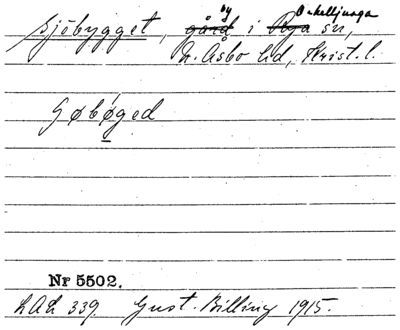 Sjöbygget, by gård i Rya Örkelljunga sn,
N. Åsbo hd, Krist. l.
Nr 5502.
LAL 339. Gust. Billing 1915.